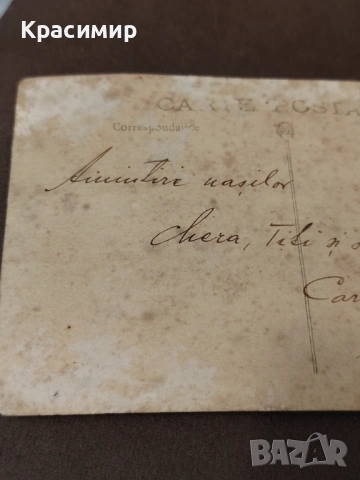 Красимир
CARTE POSTA
Correspondance
Amintire nașilor
Chera, Titi și
Car
BAZAR